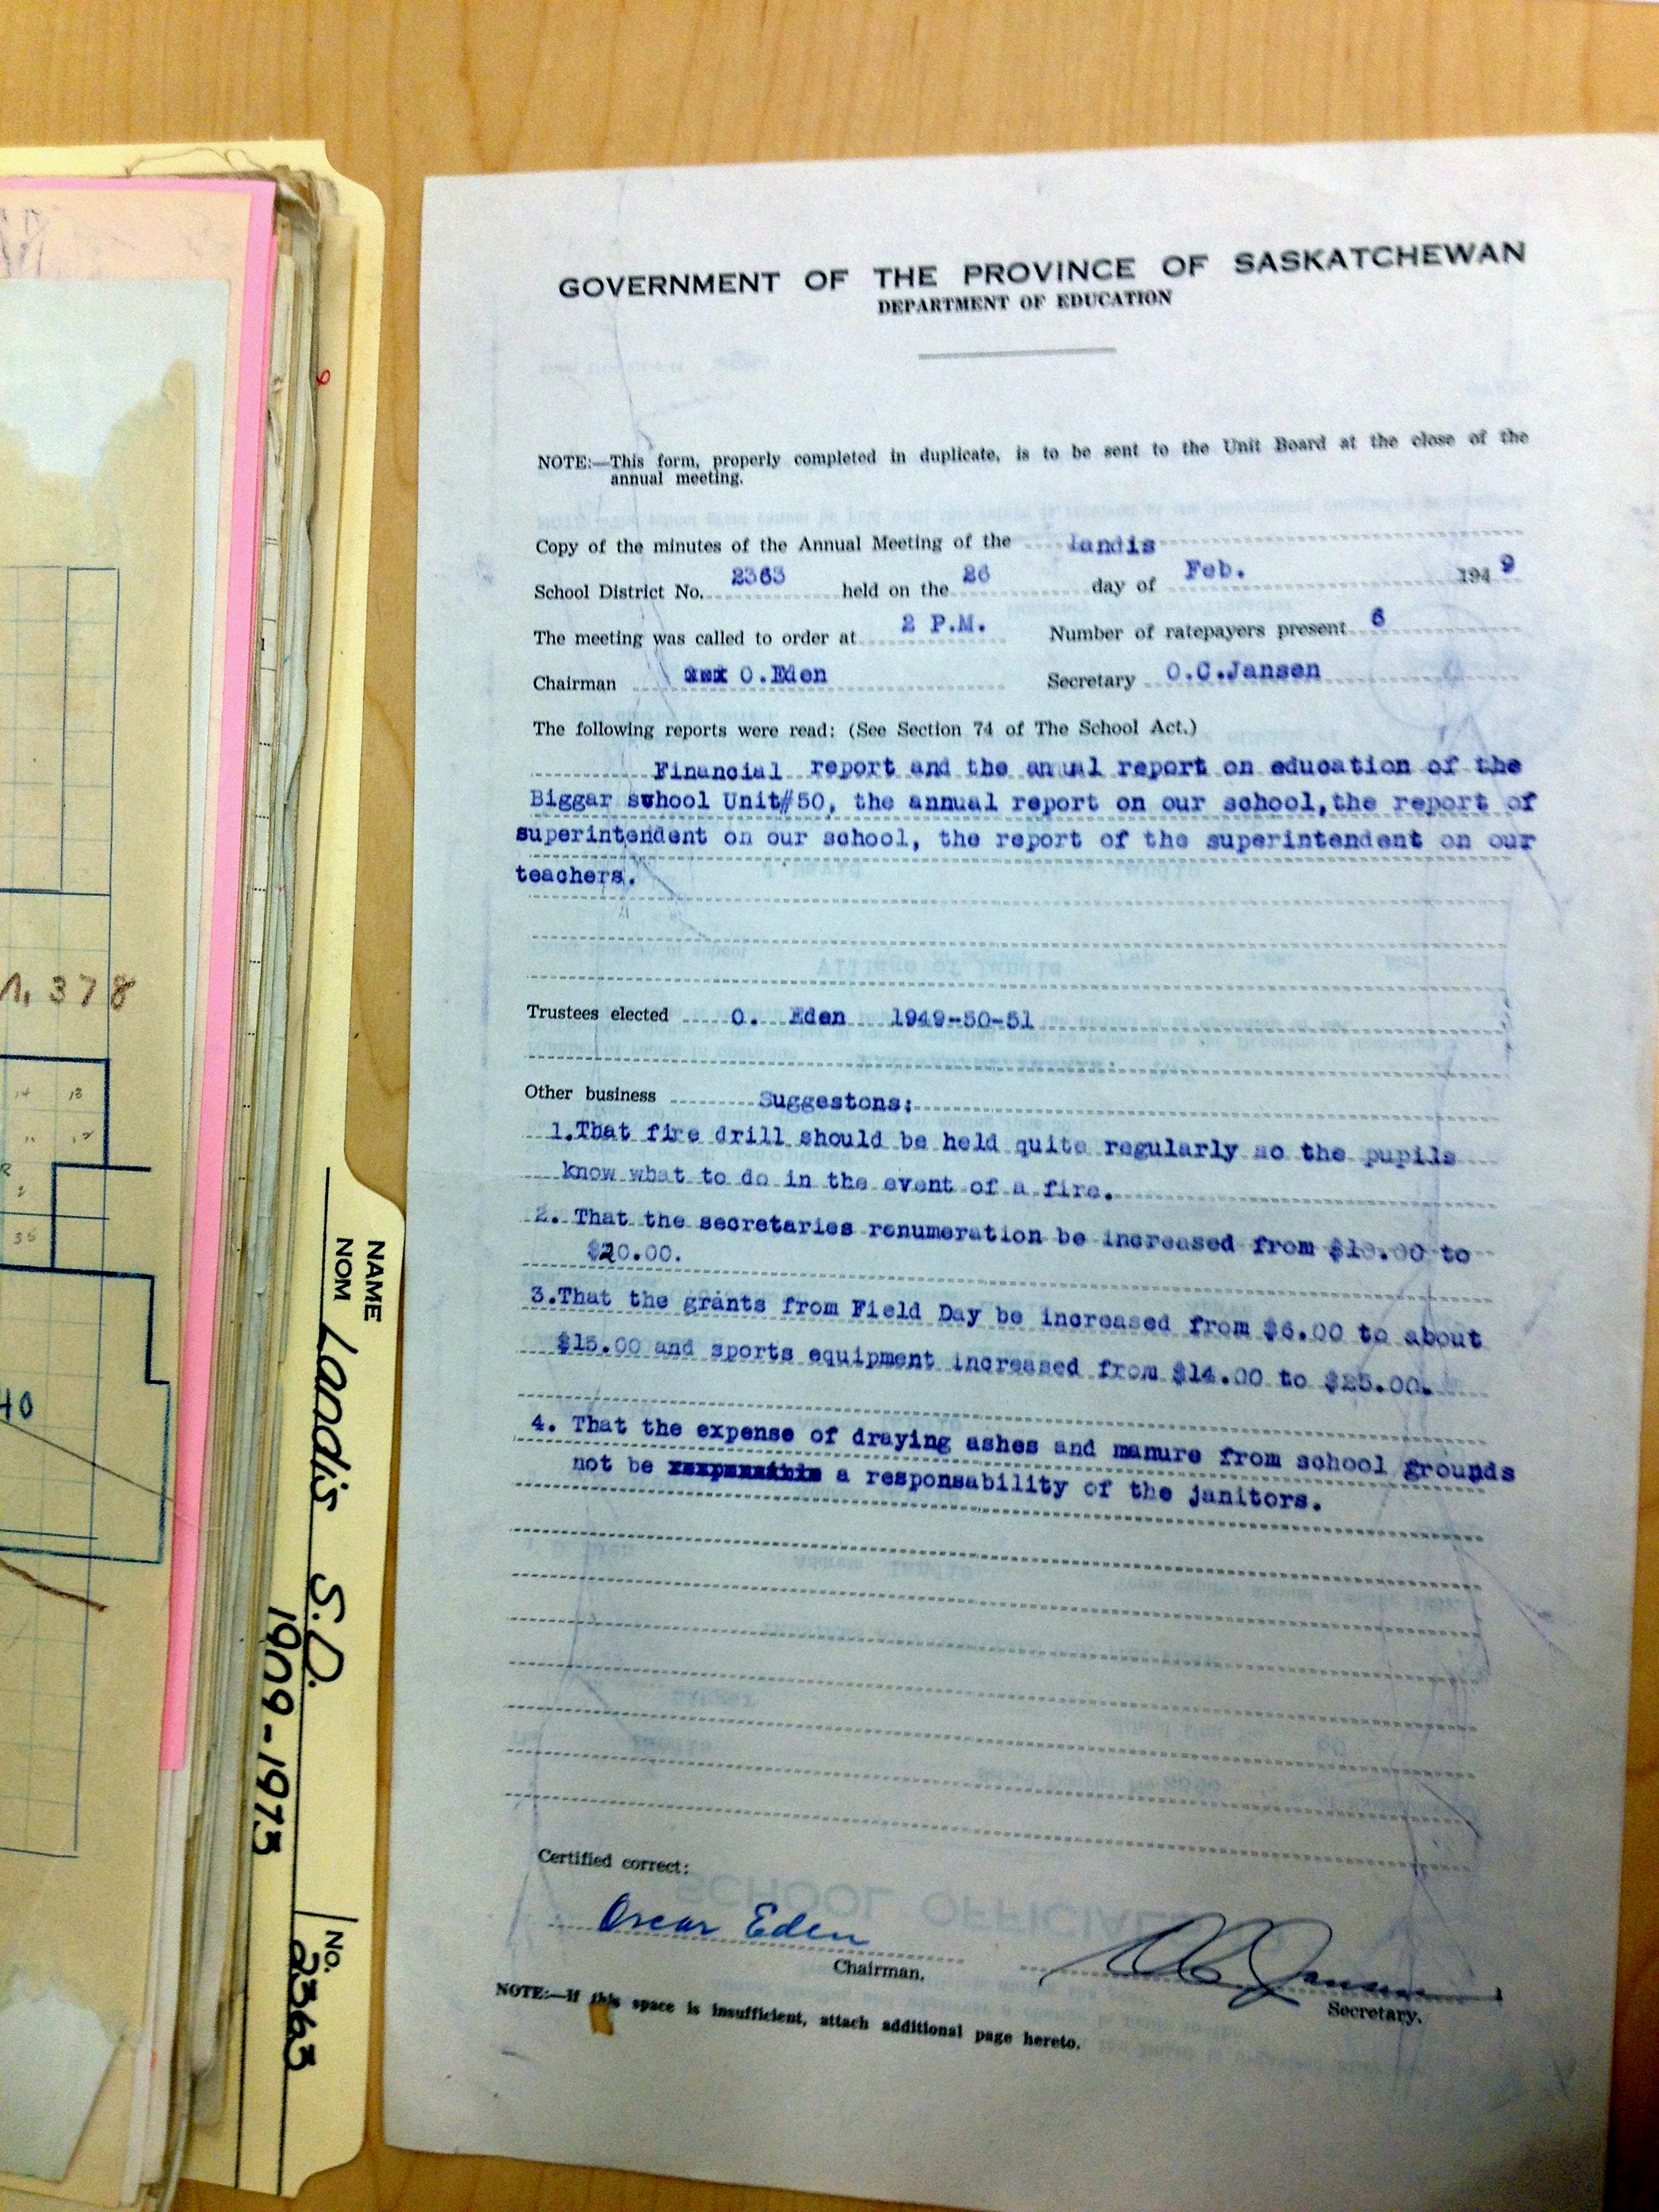 GOVERNMENT OF THE PROVINCE OF SASKATCHEWAN
DEPARTMENT OF EDUCATION
NOTE:—This form, properly completed in duplicate, is to be sent to the Unit Board at the close of the
annual meeting.
Copy of the minutes of the Annual Meeting of the Landis
School District No. 2363 held on the 26 day of Feb. 194 9
The meeting was called to order at 2 P.M. Number of ratepayers present 6
Chairman O.Eden Secretary O.C.Jansen
The following reports were read: (See Section 74 of The School Act.)
Financial report and the anual report on education of the
Biggar school Unit#50, the annual report on our school,the report of
superintendent on our school, the report of the superintendent on our
teachers.
Trustees elected O. Eden 1949-50-51
Other business Suggestons:
1.That fire drill should be held quite regularly so the pupils
know what to do in the event of a fire.
2. That the secretaries renumeration be increased from $10.00 to
$20.00.
3.That the grants from Field Day be increased from $6.00 to about
$15.00 and sports equipment increased from $14.00 to $25.00.
4. That the expense of draying ashes and manure from school grounds
not be a responsability of the janitors.
Certified correct:
Oscar Eden
Chairman.
O C Jansen
Secretary.
NOTE:—If this space is insufficient, attach additional page hereto.
NAME
NOM Landis S.D.
1909-1973
No. 2363
378
14 13
35
40